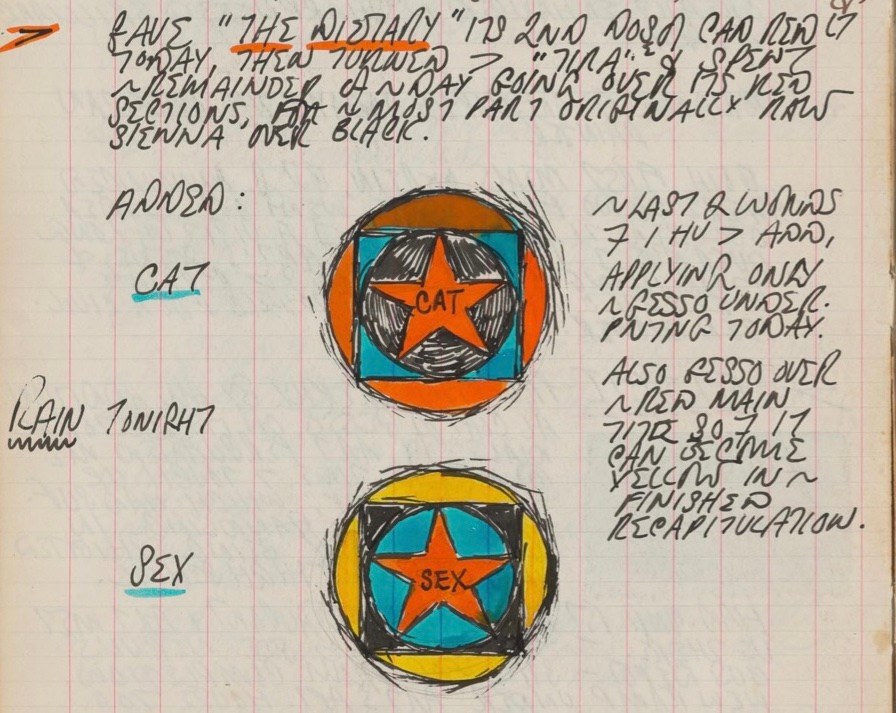 GAVE "THE DIETARY" ITS 2ND DOSE OF CAD RED LT
TODAY, THEN TURNED > "TIRA" & SPENT
~ REMAINDER OF ~ DAY GOING OVER ITS RED
SECTIONS, FOR ~ MOST PART ORIGINALLY RAW
SIENNA OVER BLACK.
ADDED:
CAT
CAT
~ LAST 2 WORDS
7 I HV > ADD,
APPLYING ONLY
~ GESSO UNDER-
PNTNG TODAY.
ALSO GESSO OVER
~ RED MAIN
TITLE SO 7 IT
CAN BECOME
YELLOW IN ~
FINISHED
RECAPITULATION.
RAIN TONIGHT
SEX
SEX